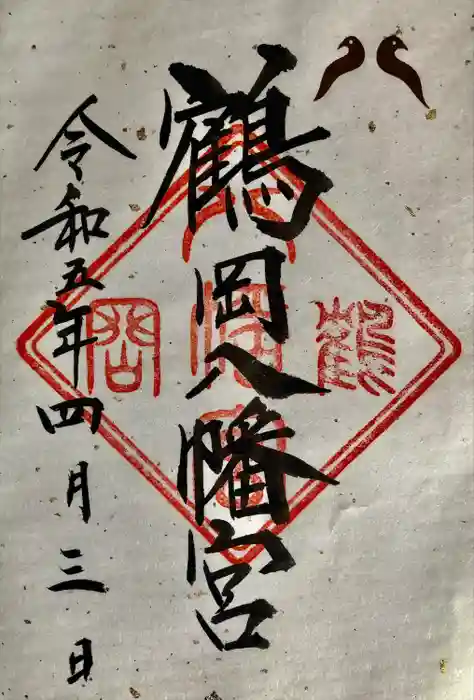 鶴岡八幡宮
令和五年四月三日